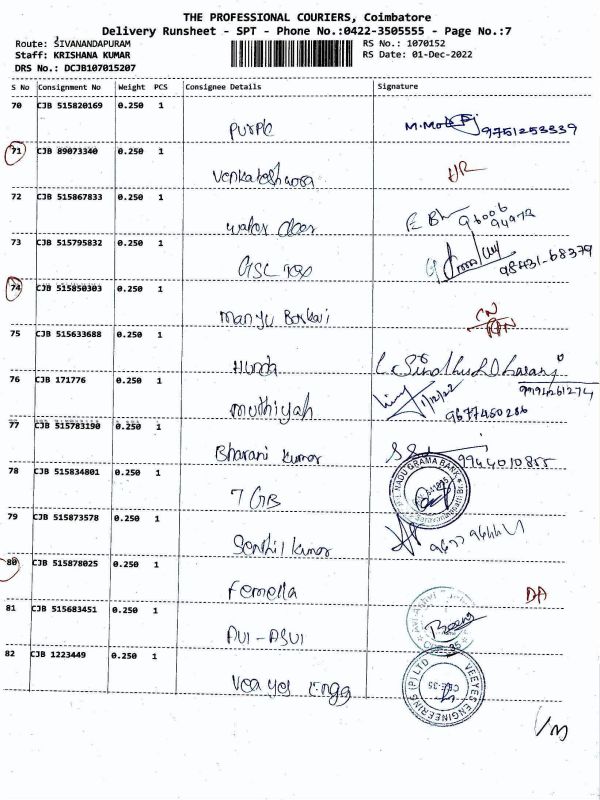 THE PROFESSIONAL COURIERS, Coimbatore
Delivery Runsheet - SPT - Phone No.:0422-3505555 - Page No.:7
Route: SIVANANDAPURAM
RS No.: 1070152
Staff: KRISHANA KUMAR
RS Date: 01-Dec-2022
DRS No.: DCJB107015207
S No Consignment No Weight PCS Consignee Details Signature
70 CJB 515820169 0.250 1
Purple 9751253339
71 CJB 89073340 0.250 1
Venkateshwara
72 CJB 515867833 0.250 1
water 96006
94972
73 CJB 515795832 0.250 1
98431-68379
74 CJB 515850303 0.250 1
Manju
75 CJB 515633688 0.250 1
Hunda
9194261274
76 CJB 171776 0.250 1
Muthiyah 1/12/22 9677450286
77 CJB 515783190 0.250 1
Bharani Kumar 9944010855
78 CJB 515834801 0.250 1
TGB
NADU GRAMA BANK
79 CJB 515873578 0.250 1
Senthil Kumar
80 CJB 515878025 0.250 1
Femella DA
81 CJB 515683451 0.250 1
AVI-ASVI
82 CJB 1223449 0.250 1
Vea yes Engg
VEEYES ENGINEERING (P) LTD
CBE-35